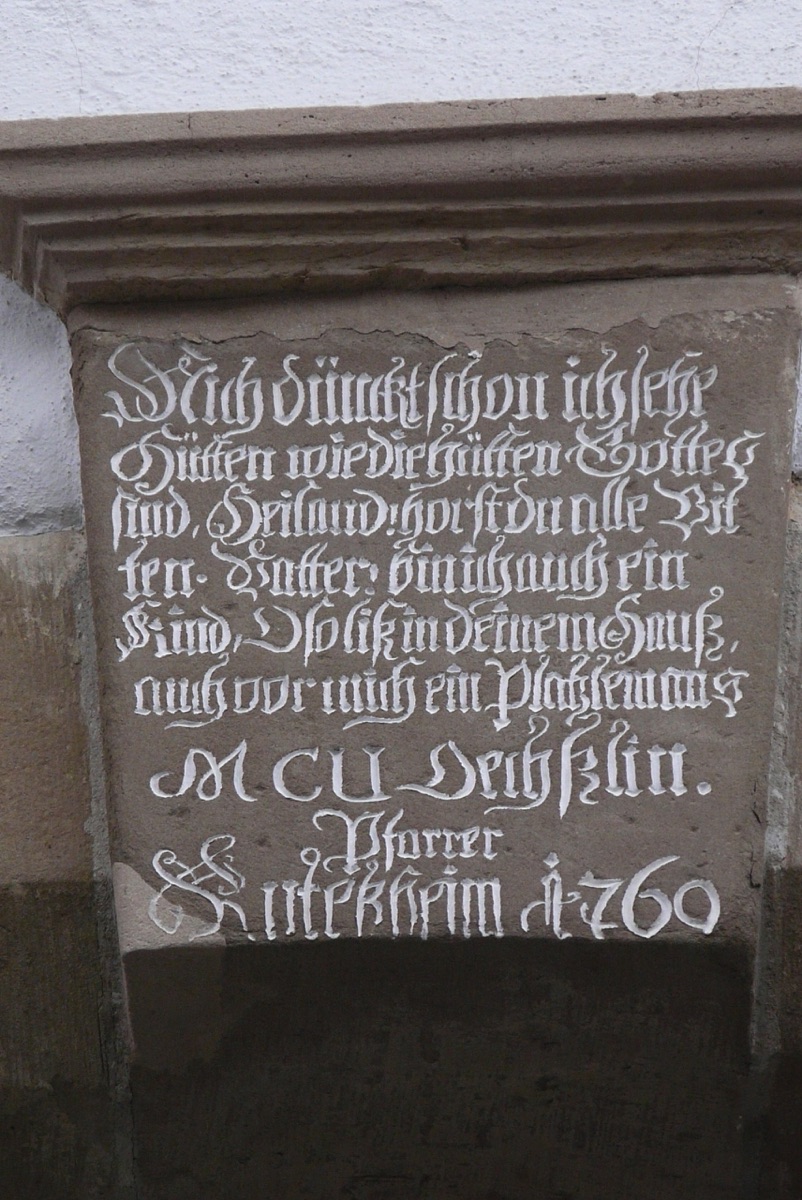 Mich dünckt schon ich sehe
Hütten wie die hütten Gottes
sind, Heiland! horst du alle Bit
ten. Vatter! bin ich auch ein
Kind, So lis in deinem Hauß,
auch vor mich ein Plätzlein aus
M C U Oechßlin.
Pfarrer
A 1760